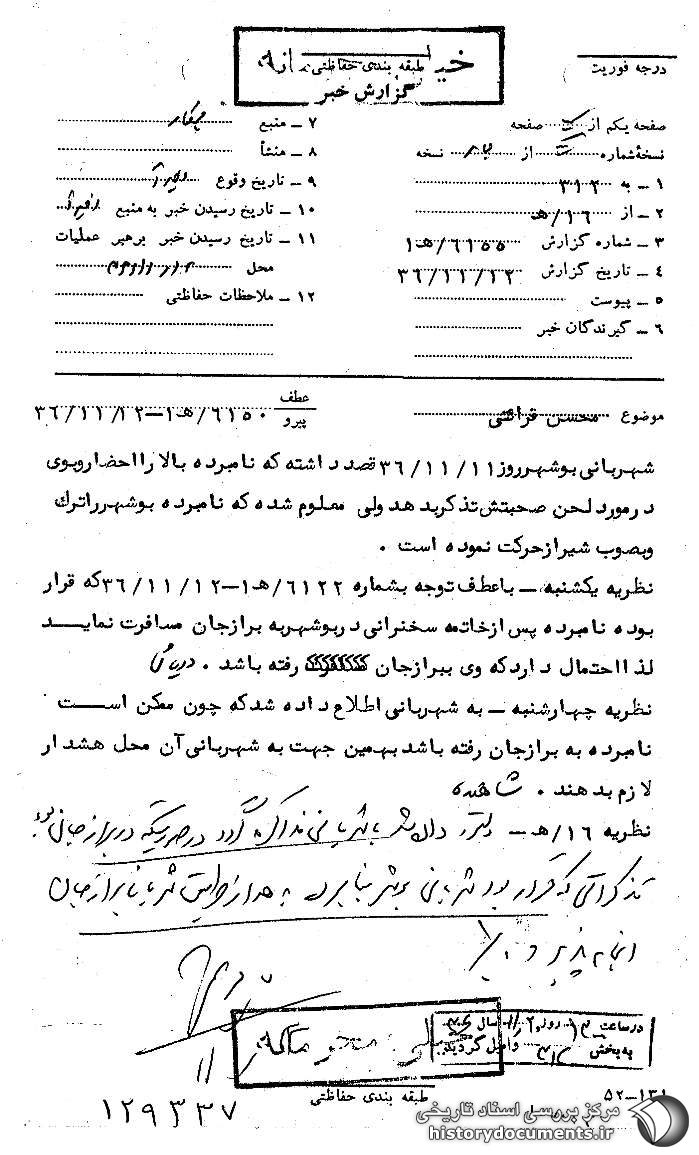 خیلی محرمانه
طبقه بندی حفاظتی
گزارش خبر
درجه فوریت
صفحه یکم از یک صفحه
نسخهٔ شماره از چهار نسخه
۱ ـ به ۳۱۲
۲ ـ از ۱۶/هـ
۳ ـ شماره گزارش ۶۱۵۵/هـ۱
۴ ـ تاریخ گزارش ۳۶/۱۱/۱۲
۵ ـ پیوست
۶ ـ گیرندگان خبر
۷ ـ منبع همکار
۸ ـ منشأ
۹ ـ تاریخ وقوع
۱۰ ـ تاریخ رسیدن خبر به منبع
۱۱ ـ تاریخ رسیدن خبر برهبر عملیات
محل
۱۲ ـ ملاحظات حفاظتی
موضوع محسن قرائتی
عطف
پیرو ۶۱۵۰/هـ۱ـ۳۶/۱۱/۱۲
شهربانی بوشهر روز ۳۶/۱۱/۱۱ قصد داشته که نامبرده بالا را احضار و بوی
در مورد لحن صحبتش تذکر بدهد ولی معلوم شده که نامبرده بوشهر را ترک
وبصوب شیراز حرکت نموده است .
نظریه یکشنبه ـ با عطف توجه بشماره ۶۱۲۲/هـ۱ـ۳۶/۱۱/۱۲ که قرار
بوده نامبرده پس از خاتمه سخنرانی در بوشهر به برازجان مسافرت نماید
لذا احتمال دارد که وی ببرازجان رفته باشد .
نظریه چهارشنبه ـ به شهربانی اطلاع داده شد که چون ممکن است
نامبرده به برازجان رفته باشد بهمین جهت به شهربانی آن محل هشدار
لازم بدهند .
نظریه ۱۶/هـ ـ در برازجان بوده
تذکراتی که قرار بود شهربانی بوشهر بنابراده به برازجان
انجام پذیرد .
در ساعت روز سال
به بخش ۳۱۲ واصل گردید
خیلی محرمانه
طبقه بندی حفاظتی
۱۳۱ـ۵۲
۱۲۹۳۳۷
مرکز بررسی اسناد تاریخی
historydocuments.ir